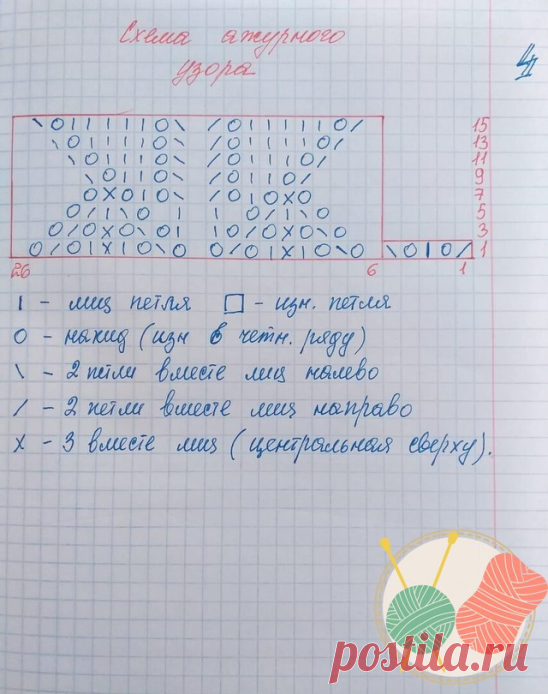 Схема ажурного
узора
\ O I I I I I O \ / O I I I I I O / 15
\ O I I I I O \ / O I I I I O / 13
\ O I I I O \ / O I I I O / 11
\ O I I O \ / O I I O / 9
O X O I O \ / O I O X O 7
O / I \ O I I O / I \ O 5
O / O X O \ O I I O / O X O \ O 3
O / O I X I O \ O O / O I X I O \ O \ O I O / 1
26 6 1
I - лиц петля □ - изн. петля
O - накид (изн в четн. ряду)
\ - 2 петли вместе лиц налево
/ - 2 петли вместе лиц направо
X - 3 вместе лиц (центральная сверху).
postila.ru